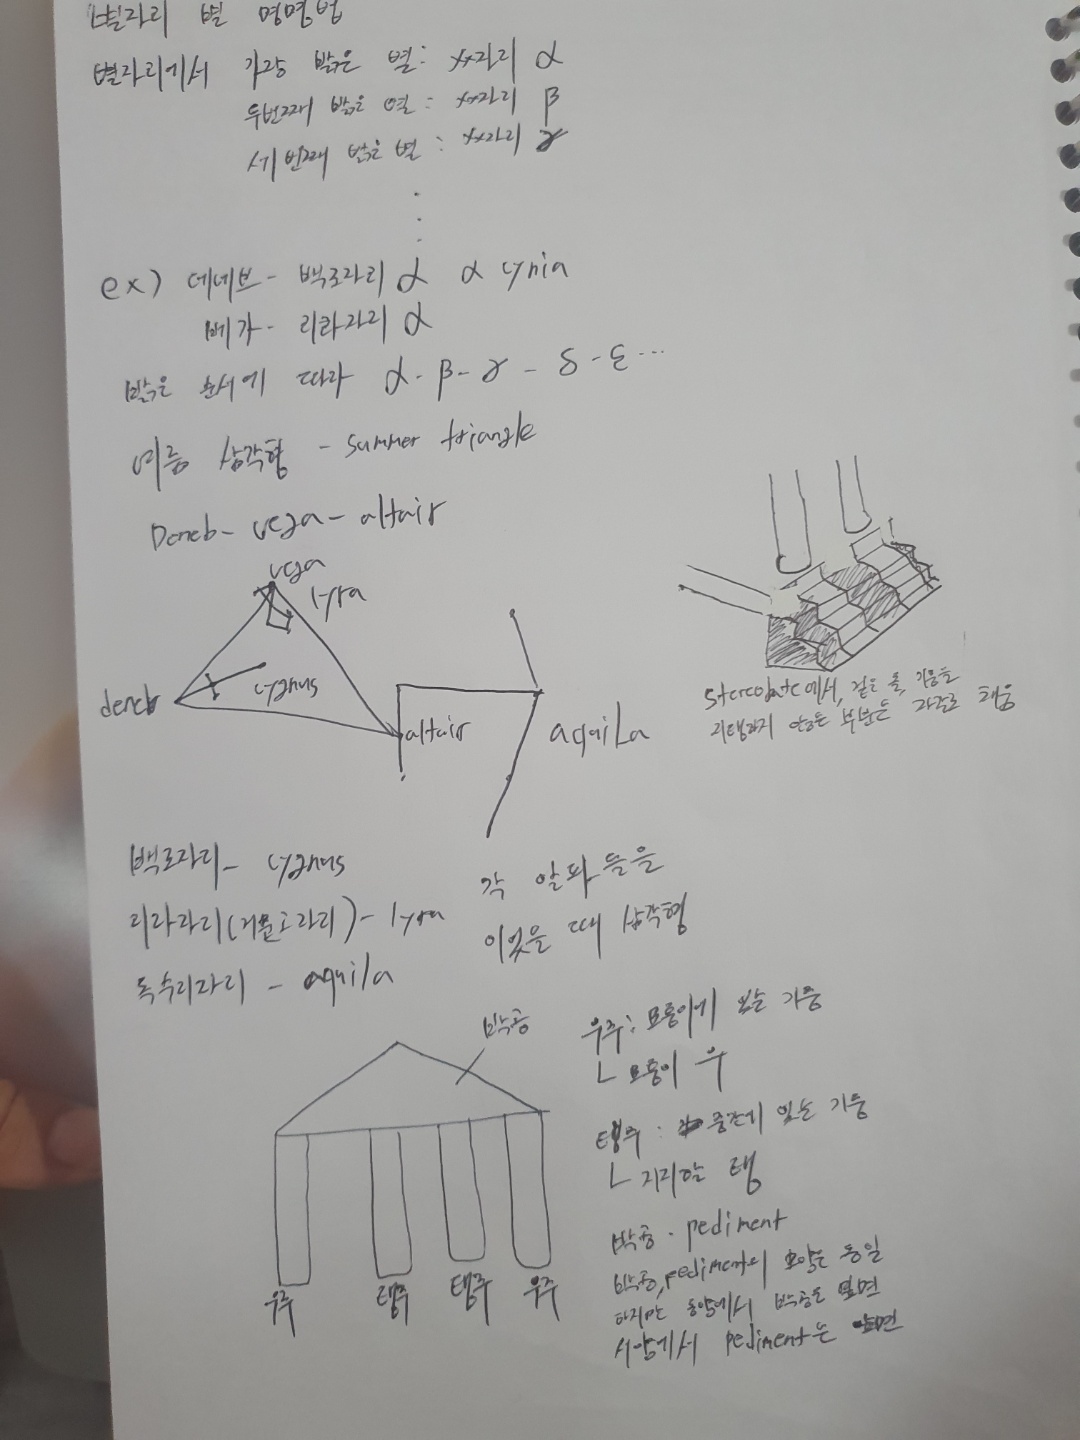 별자리 별 명명법
별자리에서 가장 밝은 별: xx자리 α
두번째 밝은 별: xx자리 β
세번째 밝은 별: xx자리 γ
ex) 데네브- 백조자리 α α cynia
베가- 리라자리 α
밝은 순서에 따라 α-β-γ-δ-ε...
여름 삼각형 - summer triangle
Deneb- vega- altair
vega
lyra
deneb
cygnus
altair
aquila
에서, 겉은 돌, 기둥을
지탱하지 않는 부분은 자갈로 채움
백조자리- cygnus
리라자리(거문고자리)- lyra
독수리자리 - aquila
각 알파들을
이었을 때 삼각형
박공
우주: 모퉁이에 있는 기둥
ㄴ 모퉁이 우
탱주: 중간에 있는 기둥
ㄴ 지탱할 탱
우주
탱주
탱주
우주
박공 - pediment
박공, pediment의 모양은 동일
하지만 동양에서 박공은
서양에서 pediment는